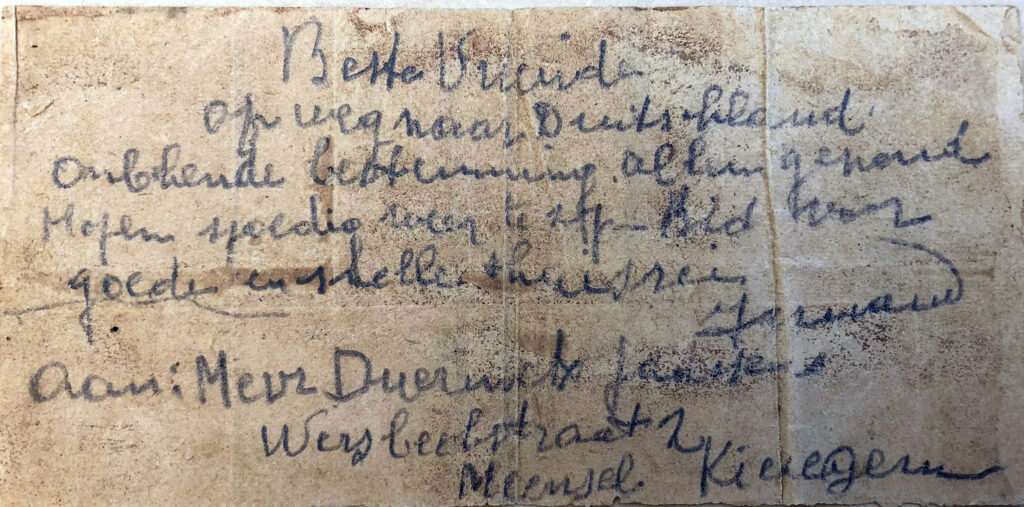 Beste Vriende
op weg naar Duitschland.
Onbekende bestemming. Allen gezond
Hopen spoedig weer te zijn – Bid voor
goede en snelle thuisreis
Armand
Aan: Mevr Duerinckx Janssens
Wersbeekstraat 2
Meensel Kieregem